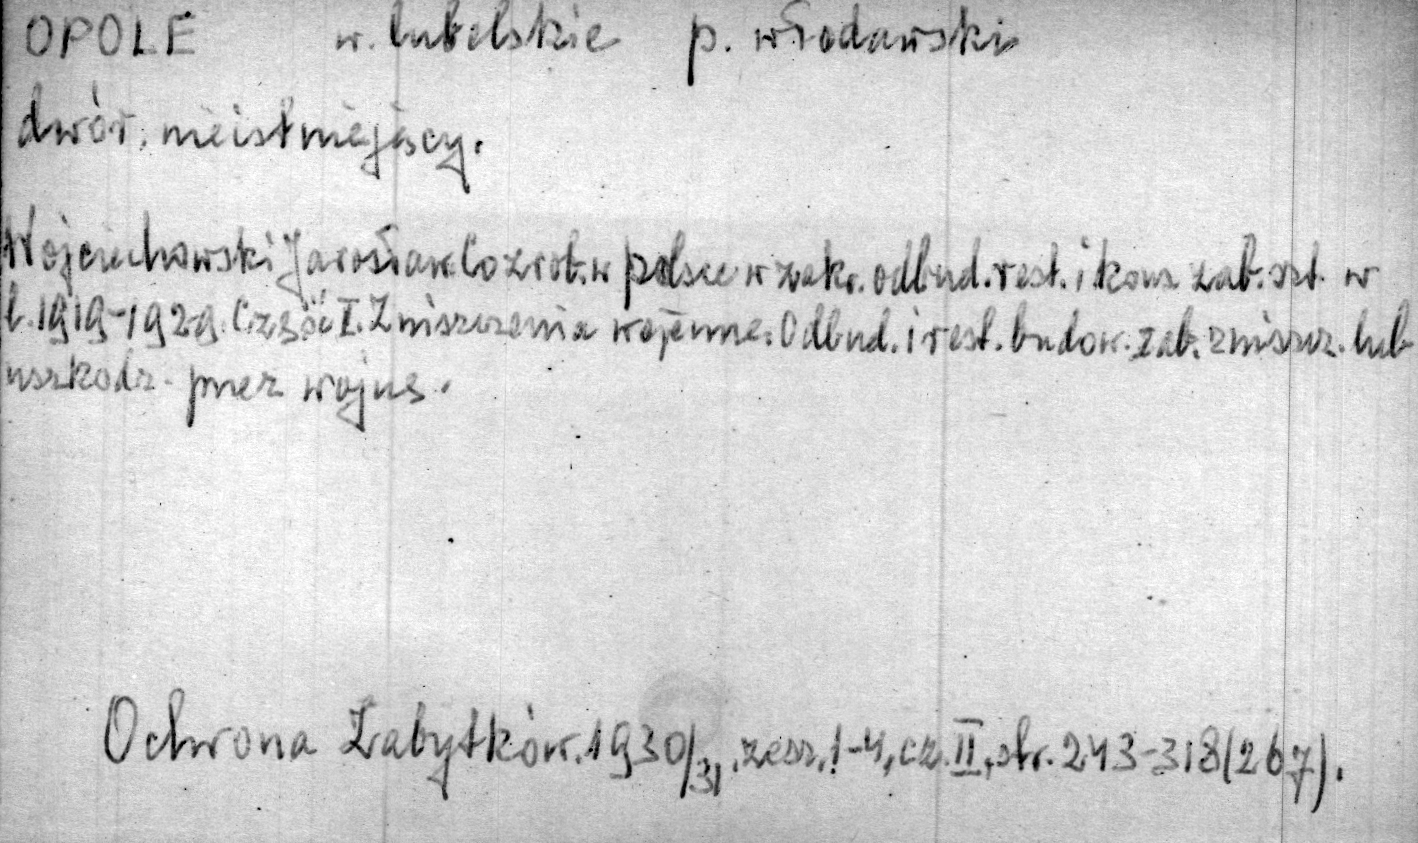 OPOLE w. lubelskie p. włodawski
dwór, nieistniejący.
Wojciechowski Jarosław. Co zrob. w Polsce w zakr. odbud. rest. i kons. zab. szt. w
l. 1919-1929. Część I. Zniszczenia wojenne. Odbud. i rest. budow. zab. zniszcz. lub
uszkodz. przez wojnę.
Ochrona Zabytków. 1930/31, zesz. 1-4, cz. II, str. 243-318 (267).